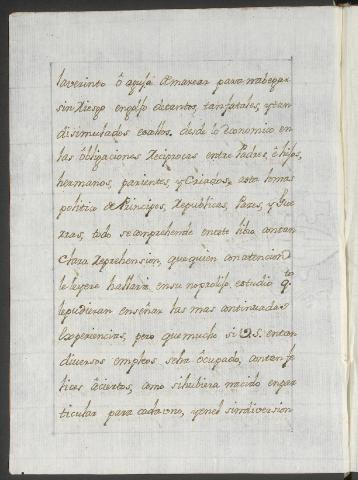 laverinto ô aguja de marear para nabegar
sin Riesgo en golfo de tantos, tan fatales, y tan
disimulados escollos. desde lo economico en
las obligaciones Reciprocas entre Padres, è hijos,
hermanos, parientes, y Criados, asta lo mas
politico de Principes, Republicas, Pazes, y Gue
rras, todo se comprehende en este libro con tan
Clara Reprehension, que quien con atencion
le leyere hallara en su no prolijo estudio qto
le pudieran enseñar las mas continuadas
Experiencias, pero que mucho si V.S. en tan
diversos empleos se ha ôcupado, con tan fe
lices âciertos, como si hubiera nacido en par
ticular para cada uno, y en el sin diversion